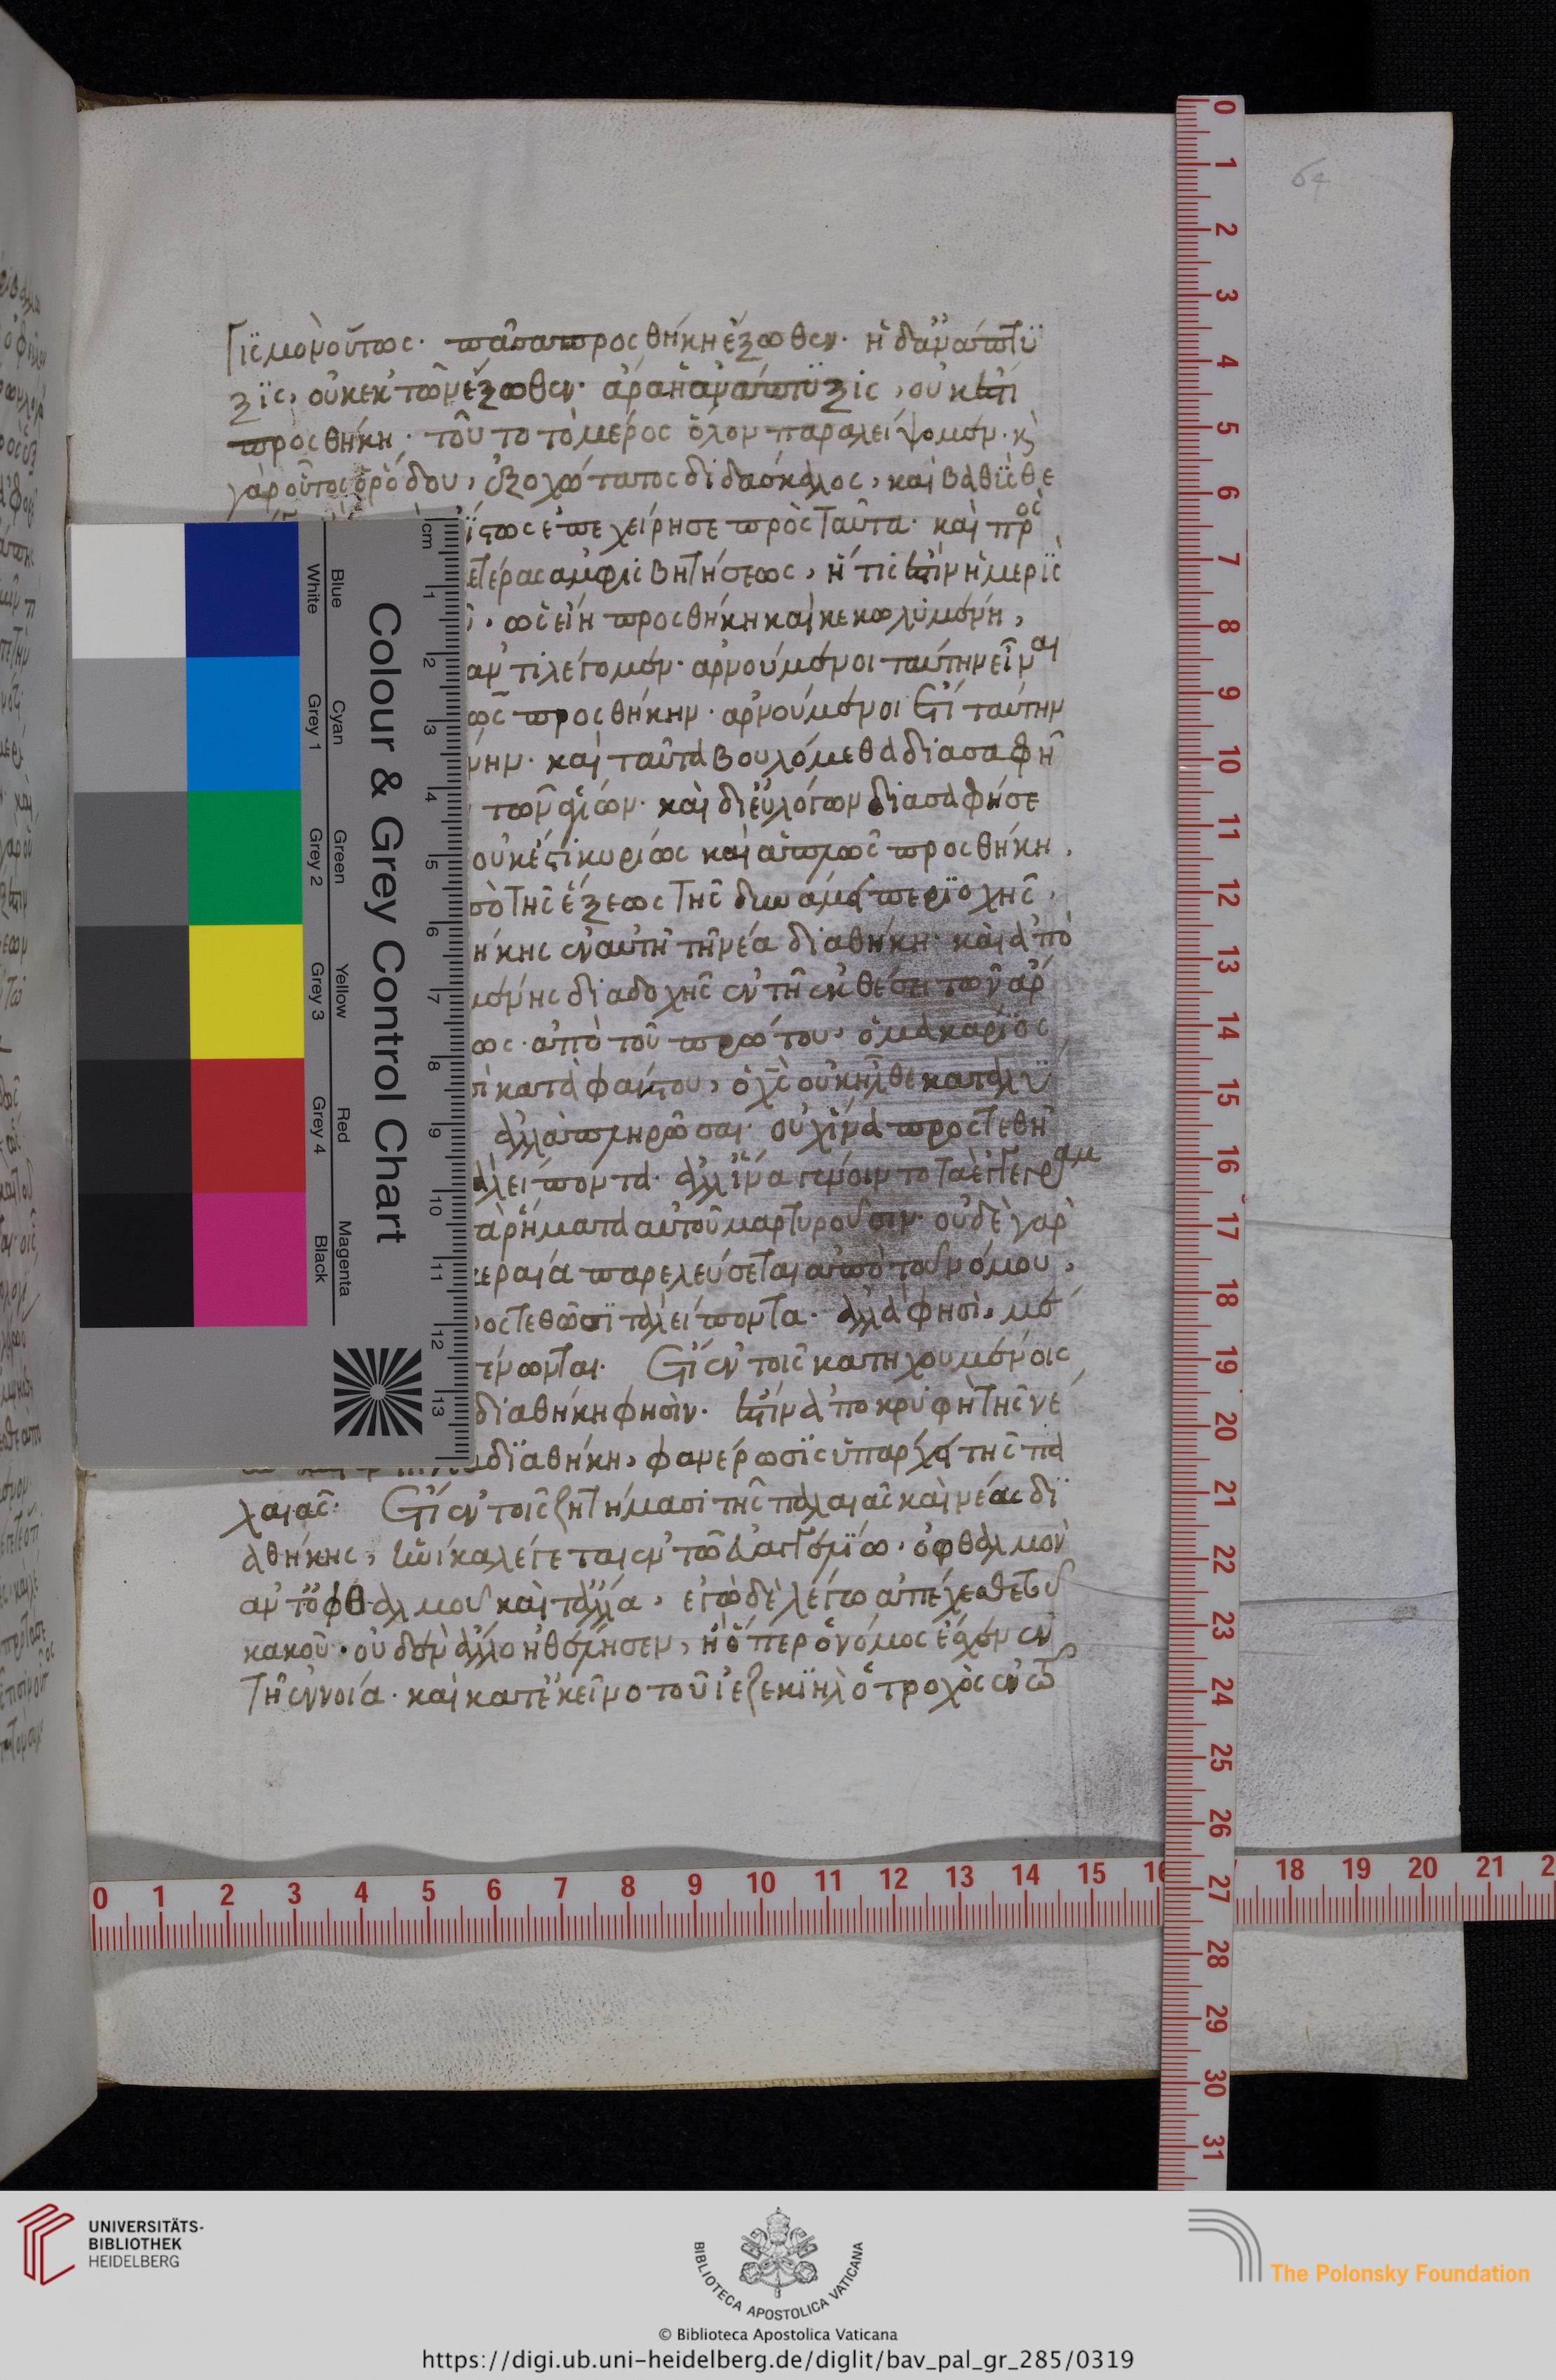 γισμὸν οὕτως. πᾶσα προσθήκη ἔξωθεν. ἡ δ' ἀνάπτυ
ξις, οὐκ ἐκ τῶν ἔξωθεν. ἄρα ἡ ἀνάπτυξις, οὐκ ἔστι
προσθήκη. τοῦτο τὸ μέρος ὅλον παραλείψομεν. κ
γὰρ οὗτος ὁ ῥόδου, ἐξοχώτατος διδάσκαλος, καὶ βαθὺς θε
ἐπεχείρησε πρὸς ταῦτα. καὶ πρὸς
ἑτέρας ἀμφισβητήσεως, ἥτις ἐστὶν ἡ μερὶς
. ὡς εἴη προσθήκη καὶ κεκωλυμένη,
ἀντιλέγομεν. ἀρνούμενοι ταύτην εἶναι
ὡς προσθήκην. ἀρνούμενοι ἔτι ταύτην
νην. καὶ ταῦτα βουλόμεθα διασαφῆ
τῶν ἁγίων. καὶ δι' εὐλόγων διασαφήσε
οὐκ ἔστι κυρίως καὶ ἁπλῶς προσθήκη.
τῆς ἕξεως τῆς δυνάμει περιοχῆς.
ήκης ἐν αὐτῇ τῇ νέα διαθήκη. καὶ ἀπὸ
μένης διαδοχῆς ἐν τῇ ἐκθέσει τῶν ἄρ
ως. ἀπὸ τοῦ πρώτου, ὁ μακάριος
κατὰ φαύστου, ὁ χς οὐκ ἦλθε καταλῦ
ἀλλὰ πληρῶσαι. οὐχ ἵνα προστεθῆ
λείποντα. ἀλλ' ἵνα γένοιντο τὰ γεγραμ
τὰ ῥήματα αὐτοῦ μαρτυροῦσιν. οὐδὲ γὰρ
κεραία παρελεύσεται ἀπὸ τοῦ νόμου,
ροστεθῶσι τὰ λείποντα. ἀλλά φησι, μέ
γένωνται. Ἔτι ἐν τοῖς κατηχουμένοις
διαθήκη φησίν. ἔστιν ἀποκρυφὴ τῆς νέ
διαθήκη, φανέρωσις ὑπάρχει τῆς πα
λαιᾶς. Ἔτι ἐν τοῖς ζητήμασι τῆς παλαιᾶς καὶ νέας δι
αθήκης, ὀφθαλμὸν
ἀντ' ὀφθαλμοῦ καὶ τἄλλα, ἐγὼ δὲ λέγω ἀπέχεσθε τοῦ
κακοῦ. οὐδὲν ἄλλο ἠθέλησεν, ἢ ὅπερ ὁ νόμος ἔχει ἐν
τῇ ἐννοία. καὶ κατ' ἐκεῖνο τοῦ ἰεζεκιὴλ ὁ τροχὸς ἐν τῶ
Colour & Grey Control Chart
Blue Cyan Green Yellow Red Magenta
White Grey 1 Grey 2 Grey 3 Grey 4 Black
cm 1 2 3 4 5 6 7 8 9 10 11 12 13
0 1 2 3 4 5 6 7 8 9 10 11 12 13 14 15 16 17 18 19 20 21 22 23 24 25 26 27 28 29 30 31
0 1 2 3 4 5 6 7 8 9 10 11 12 13 14 15 16 18 19 20 21
UNIVERSITÄTS-
BIBLIOTHEK
HEIDELBERG
BIBLIOTECA APOSTOLICA VATICANA
The Polonsky Foundation
© Biblioteca Apostolica Vaticana
https://digi.ub.uni-heidelberg.de/diglit/bav_pal_gr_285/0319